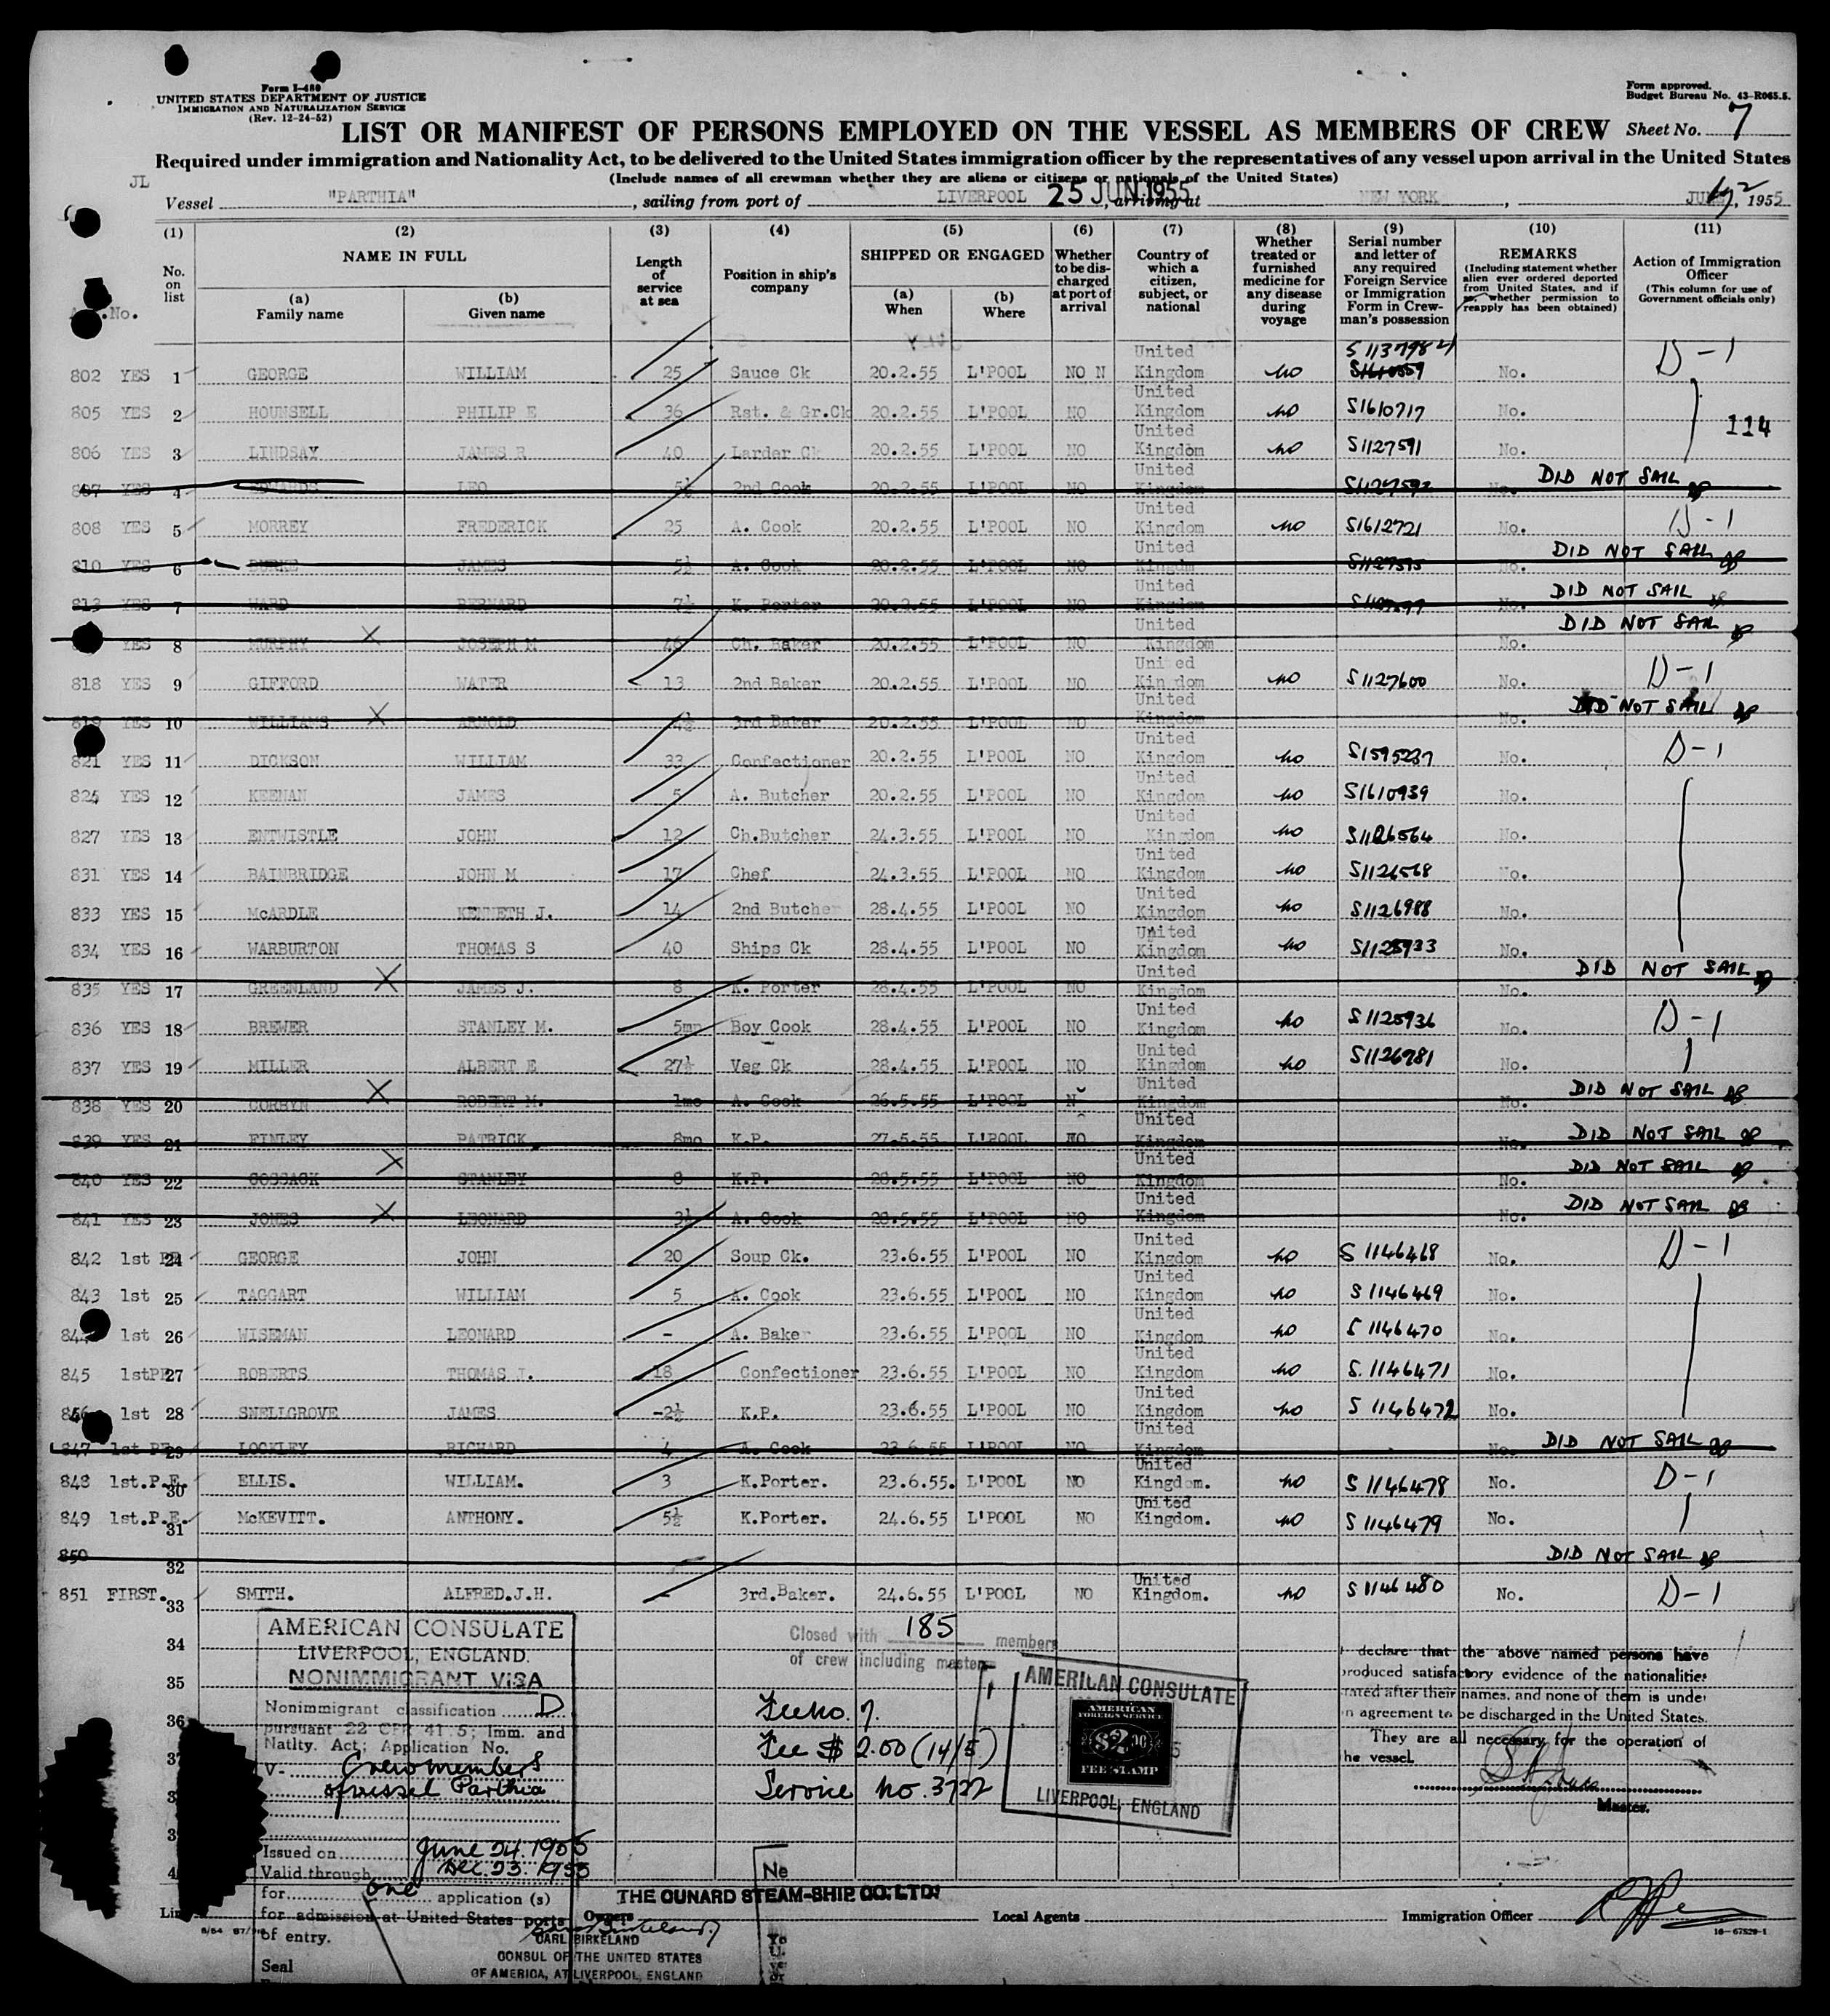 Form I-480
UNITED STATES DEPARTMENT OF JUSTICE
IMMIGRATION AND NATURALIZATION SERVICE
(Rev. 12-24-52)
Form approved.
Budget Bureau No. 43-R065.5.
LIST OR MANIFEST OF PERSONS EMPLOYED ON THE VESSEL AS MEMBERS OF CREW Sheet No. 7
Required under immigration and Nationality Act, to be delivered to the United States immigration officer by the representatives of any vessel upon arrival in the United States
(Include names of all crewman whether they are aliens or citizens or nationals of the United States)
JL
Vessel "PARTHIA", sailing from port of LIVERPOOL 25 JUN 1955, arriving at NEW YORK, 2, 1955
(1) No. on list
(2) NAME IN FULL (a) Family name (b) Given name
(3) Length of service at sea
(4) Position in ship's company
(5) SHIPPED OR ENGAGED (a) When (b) Where
(6) Whether to be discharged at port of arrival
(7) Country of which a citizen, subject, or national
(8) Whether treated or furnished medicine for any disease during voyage
(9) Serial number and letter of any required Foreign Service or Immigration Form in Crewman's possession
(10) REMARKS (Including statement whether alien ever ordered deported from United States, and if so, whether permission to reapply has been obtained)
(11) Action of Immigration Officer (This column for use of Government officials only)
802 YES 1 GEORGE WILLIAM 25 Sauce Ck 20.2.55 L'POOL NO N United Kingdom no No. D-1
805 YES 2 HOUNSELL PHILIP E 36 Rst. & Gr.Ck 20.2.55 L'POOL NO United Kingdom no S1610717 No.
114
806 YES 3 LINDSAY JAMES R 40 Larder Ck 20.2.55 L'POOL NO United Kingdom no S1127591 No.
807 YES 4 EDWARDS LEO 5½ 2nd Cook 20.2.55 L'POOL NO United Kingdom S1127592 No. DID NOT SAIL
808 YES 5 MORREY FREDERICK 25 A. Cook 20.2.55 L'POOL NO United Kingdom no S1612721 No. D-1
810 YES 6 BURKE JAMES 5½ A. Cook 20.2.55 L'POOL NO United Kingdm S1127595 No. DID NOT SAIL
813 YES 7 WARD BERNARD 7½ K. Porter 20.2.55 L'POOL NO United Kingdom No. DID NOT SAIL
YES 8 MURPHY JOSEPH M 46 Ch. Baker 20.2.55 L'POOL NO United Kingdom No. DID NOT SAIL
818 YES 9 GIFFORD WATER 13 2nd Baker 20.2.55 L'POOL NO United Kingdom no S1127600 No. D-1
819 YES 10 WILLIAMS ARNOLD 4½ 3rd Baker 20.2.55 L'POOL NO United Kingdom No. DID NOT SAIL
821 YES 11 DICKSON WILLIAM 33 Confectioner 20.2.55 L'POOL NO United Kingdom no S1595237 No. D-1
824 YES 12 KEENAN JAMES 5 A. Butcher 20.2.55 L'POOL NO United Kingdom no S1610939 No.
827 YES 13 ENTWISTLE JOHN 12 Ch.Butcher 24.3.55 L'POOL NO United Kingdom no S1126564 No.
831 YES 14 BAINBRIDGE JOHN M 17 Chef 24.3.55 L'POOL NO United Kingdom no S1126568 No.
833 YES 15 McARDLE KENNETH J. 14 2nd Butcher 28.4.55 L'POOL NO United Kingdom no S1126988 No.
834 YES 16 WARBURTON THOMAS S 40 Ships Ck 28.4.55 L'POOL NO United Kingdom no S1125933 No.
835 YES 17 GREENLAND JAMES J. 8 K. Porter 28.4.55 L'POOL NO United Kingdom No. DID NOT SAIL
836 YES 18 BREWER STANLEY M. 5mn Boy Cook 28.4.55 L'POOL NO United Kingdom no S1125936 No. D-1
837 YES 19 MILLER ALBERT E 27½ Veg Ck 28.4.55 L'POOL NO United Kingdom no S1126781 No.
838 YES 20 CORBYN ROBERT M. 1mo A. Cook 26.5.55 L'POOL N United Kingdom No. DID NOT SAIL
839 YES 21 FINLEY PATRICK 8mo K.P. 27.5.55 L'POOL NO United Kingdom No. DID NOT SAIL
840 YES 22 COSSACK STANLEY 8 K.P. 28.5.55 L'POOL NO United Kingdom No. DID NOT SAIL
841 YES 23 JONES LEONARD 3½ A. Cook 28.5.55 L'POOL NO United Kingdom No. DID NOT SAIL
842 1st PE 24 GEORGE JOHN 20 Soup Ck. 23.6.55 L'POOL NO United Kingdom no S 1146468 No. D-1
843 1st 25 TAGGART WILLIAM 5 A. Cook 23.6.55 L'POOL NO United Kingdom no S 1146469 No.
844 1st 26 WISEMAN LEONARD - A. Bake 23.6.55 L'POOL NO United Kingdom no S 1146470 No.
845 1stPE 27 ROBERTS THOMAS J. 18 Confectioner 23.6.55 L'POOL NO United Kingdom no S. 1146471 No.
846 1st 28 SNELLGROVE JAMES -2½ K.P. 23.6.55 L'POOL NO United Kingdom no S 1146472 No.
847 1st PE 29 LOCKLEY RICHARD 4 A. Cook 23.6.55 L'POOL NO United Kingdom No. DID NOT SAIL
848 1st.P.E. 30 ELLIS. WILLIAM. 3 K.Porter. 23.6.55. L'POOL NO United Kingdom. no S 1146478 No. D-1
849 1st.P.E. 31 McKEVITT. ANTHONY. 5½ K.Porter. 24.6.55 L'POOL NO United Kingdom. no S 1146479 No.
850 32 DID NOT SAIL
851 FIRST. 33 SMITH. ALFRED.J.H. - 3rd.Baker. 24.6.55 L'POOL NO United Kingdom. no S 1146480 No. D-1
34
35
36
37
AMERICAN CONSULATE
LIVERPOOL, ENGLAND.
NONIMMIGRANT VISA
Nonimmigrant classification D
pursuant 22 CFR 41.5; Imm. and
Natlty. Act; Application No.
V- Crewmembers
of vessel Parthia
Issued on June 24. 1955
Valid through Dec. 23. 1955
for one application (s)
for admission at United States ports
of entry.
Seal
Closed with 185 members
of crew including master
Fee No. 7.
Fee $ 2.00 (14/5)
Service No. 3722
AMERICAN CONSULATE
AMERICAN
FOREIGN SERVICE
$2.00
FEE STAMP
LIVERPOOL, ENGLAND
declare that the above named persons have
produced satisfactory evidence of the nationalities
stated after their names, and none of them is under
an agreement to be discharged in the United States.
They are all necessary for the operation of
the vessel.
Master.
Ne
THE CUNARD STEAM-SHIP CO. LTD.
Owners
Local Agents
Immigration Officer
CARL BIRKELAND
CONSUL OF THE UNITED STATES
OF AMERICA, AT LIVERPOOL, ENGLAND
16-67529-1